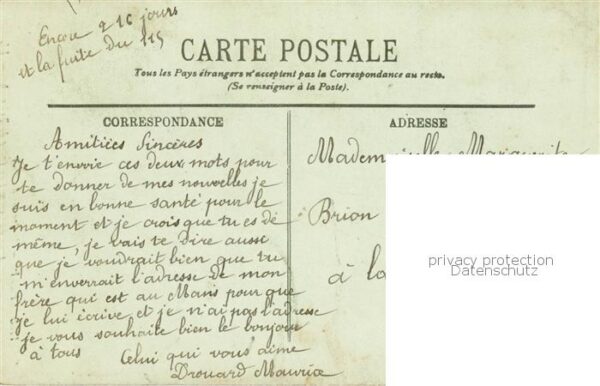 Encore 216 jours
et la fuite du 115
CARTE POSTALE
Tous les Pays étrangers n'acceptent pas la Correspondance au recto.
(Se renseigner à la Poste).
CORRESPONDANCE
Amitiées Sincères
Je t'envoie ces deux mots pour
te donner de mes nouvelles je
suis en bonne santé pour le
moment et je crois que tu es de
même, je vais te dire aussi
que je voudrait bien que tu
m'enverrait l'adresse de mon
frère qui est au Mans pour que
je lui écrive et je n'ai pas l'adresse
je vous souhaite bien le bonjour
à tous Celui qui vous aime
Drouard Maurice
ADRESSE
Mademoiselle Marguerite
Brion
à la
privacy protection
Datenschutz